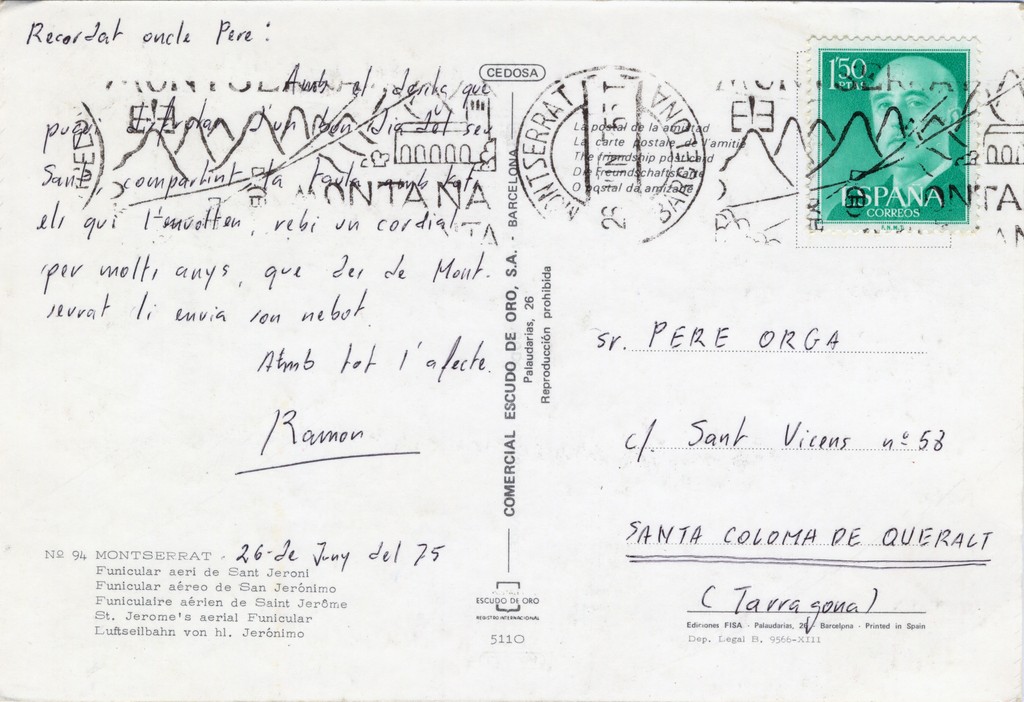 Recordat oncle Pere:
Amb el desitg que
pugui d'un bon dia del seu
Sant, compartint la taula amb tots
els qui l'envolten, rebi un cordial
per molts anys, que des de Mont-
serrat li envia son nebot.
Amb tot l'afecte.
Ramon
Nº 94 MONTSERRAT - 26-de Juny del 75
Funicular aeri de Sant Jeroni
Funicular aéreo de San Jerónimo
Funiculaire aérien de Saint Jerôme
St. Jerome's aerial Funicular
Luftseilbahn von hl. Jerónimo
CEDOSA
COMERCIAL ESCUDO DE ORO, S.A. - BARCELONA
Palaudarias, 26
Reproducción prohibida
ESCUDO DE ORO
REGISTRO INTERNACIONAL
5110
MONTSERRAT
BARCELONA
MONTANA
La postal de la amistad
La carte postale de l'amitié
The friendship postcard
Die Freundschaftskarte
O postal da amizade
1'50
PTAS
ESPAÑA
CORREOS
F.N.M.T.
Sr. PERE ORGA
c/. Sant Vicens nº 58
SANTA COLOMA DE QUERALT
(Tarragona)
Ediciones FISA - Palaudarias, 26 - Barcelona - Printed in Spain
Dep. Legal B. 9566-XIII